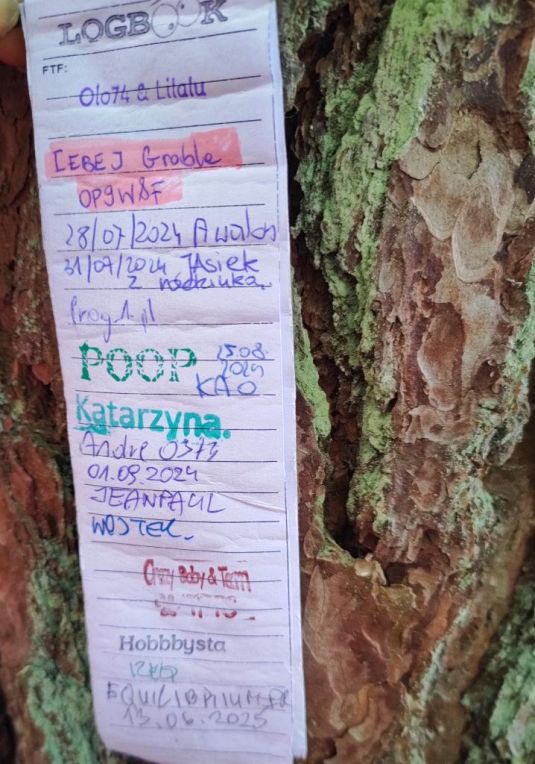 LOGBOOK
FTF:
Olo74 & Lilalu
CEBEJ Grable
OP9W8F
28/07/2024 Awalon
31/07/2024 JAsiek
z rodzinką
Prog.1.pl
POOP 25.08.
2024
KAO
Katarzyna.
Andre 0373
01.09.2024
JEANPAUL
WOJTEK.
Crazy Baby & Term
Hobbbysta
EQUILIBRIUM
13.06.2025